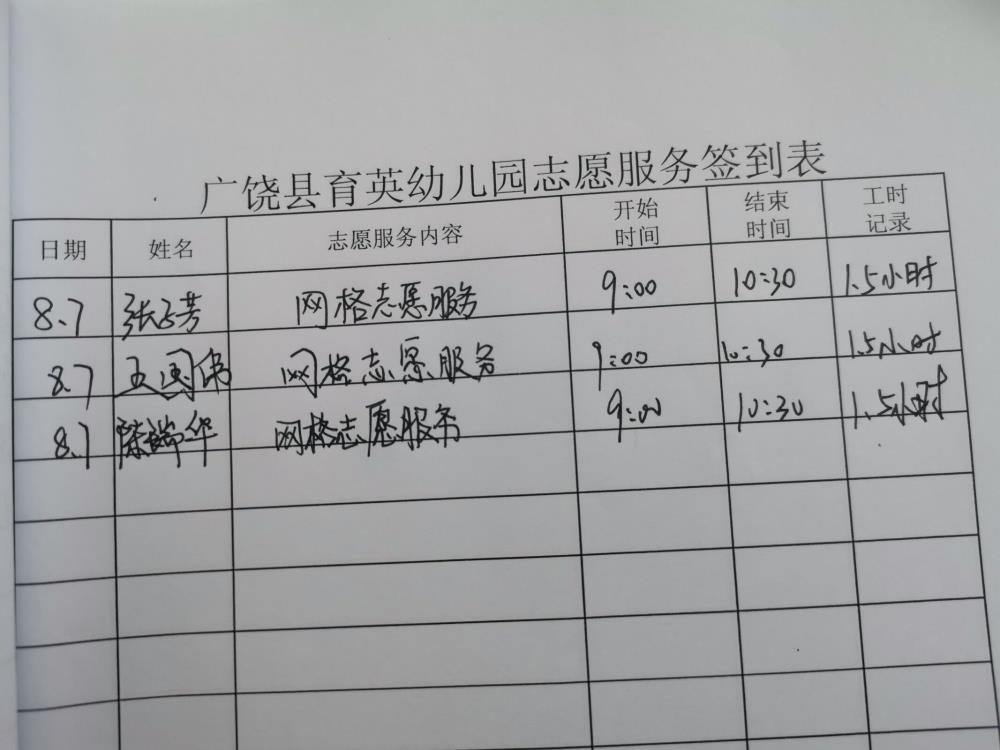 广饶县育英幼儿园志愿服务签到表
日期 姓名 志愿服务内容 开始时间 结束时间 工时记录
8.7 张玉芳 网格志愿服务 9:00 10:30 1.5小时
8.7 王国伟 网格志愿服务 9:00 10:30 1.5小时
8.7 陈瑞华 网格志愿服务 9:00 10:30 1.5小时